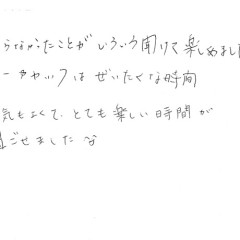 らなかったことがいろいろ聞けて楽しめまし
ーカヤックはぜいたくな時間
気もよくて、とても楽しい時間が
過ごせましたな